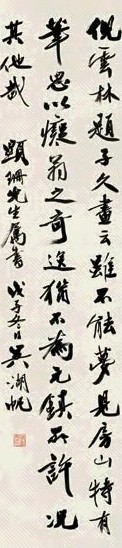 倪雲林題子久畫云雖不能夢見房山特有
筆思以癡翁之奇逸猶不為元鎮所許況
其他哉 顯珊先生屬書 戊子冬日吳湖帆